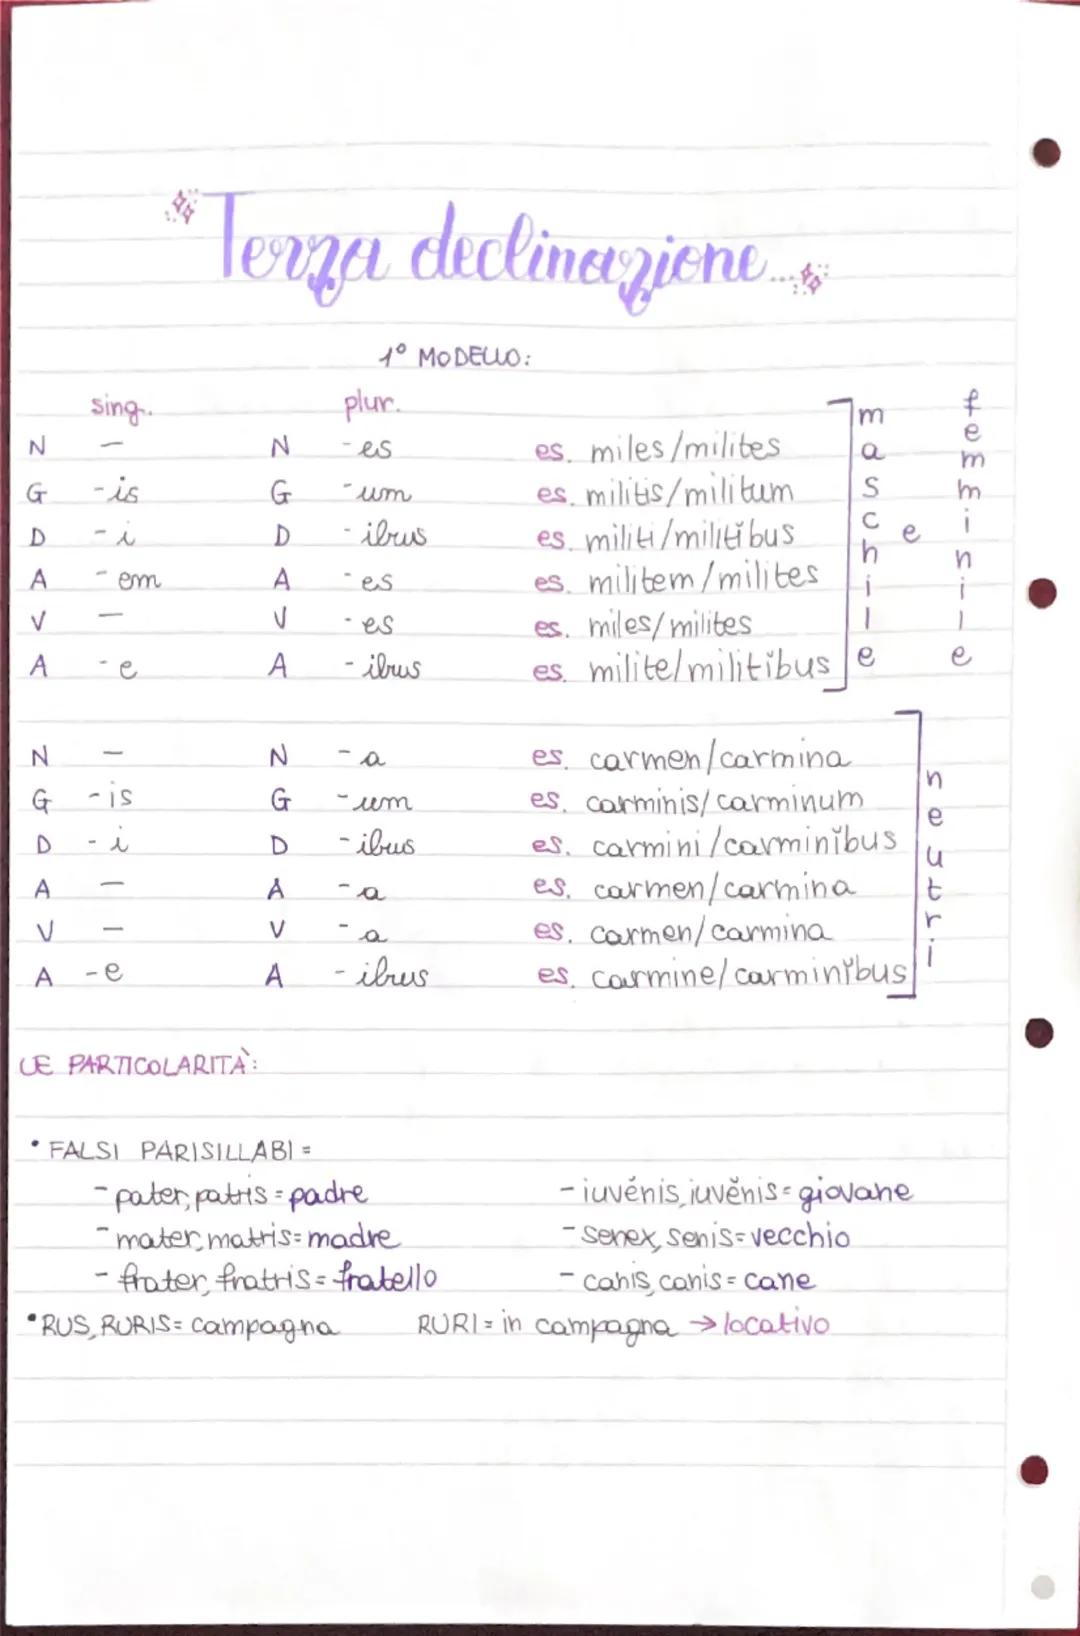 Terza declinazione...
1° MODELLO:
sing. plur.
N – N -es es. miles/milites
G -is G -um es. militis/militum
D -i D -ibus es. militi/militĭbus
A -em A -es es. militem/milites
V – V -es es. miles/milites
A -e A -ibus es. milite/militĭbus
maschile e femminile
N – N -a es. carmen/carmina
G -is G -um es. carminis/carminum
D -i D -ibus es. carmini/carminĭbus
A – A -a es. carmen/carmina
V – V -a es. carmen/carmina
A -e A -ibus es. carmine/carminĭbus
neutri
LE PARTICOLARITÀ:
• FALSI PARISILLABI =
- pater, patris = padre - iuvĕnis, iuvĕnis = giovane
- mater, matris = madre - senex, senis = vecchio
- frater, fratris = fratello - canis, canis = cane
• RUS, RURIS = campagna RURI = in campagna → locativo